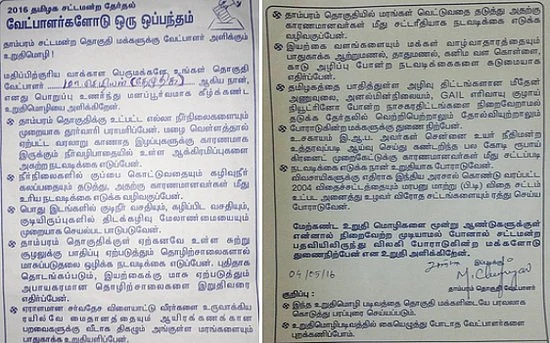 2016 தமிழக சட்டமன்ற தேர்தல்
வேட்பாளர்களோடு ஒரு ஒப்பந்தம்
தாம்பரம் சட்டமன்ற தொகுதி மக்களுக்கு வேட்பாளர் அளிக்கும்
உறுதிமொழி!
மதிப்பிற்குரிய வாக்காள பெருமக்களே, உங்கள் தொகுதி
வேட்பாளர் ஆகிய நான்,
எனது பொறுப்பு உணர்ந்து மனப்பூர்வமாக கீழ்க்கண்ட
உறுதிமொழியை அளிக்கிறேன்.
தாம்பரம் தொகுதிக்கு உட்பட்ட எல்லா நீர்நிலைகளையும்
முறையாக தூர்வாரி பராமரிப்பேன். மழை வெள்ளத்தால்
ஏற்பட்ட வரலாறு காணாத இழப்புகளுக்கு காரணமாக
இருக்கும் நீர்வழிபாதையில் உள்ள ஆக்கிரமிப்புகளை
அகற்ற நடவடிக்கை எடுப்பேன்.
நீர்நிலைகளில் குப்பை கொட்டுவதையும் கழிவுநீர்
கலப்பதையும் தடுத்து, அதற்கு காரணமானவர்கள் மீது
உரிய நடவடிக்கை எடுக்க வழிவகுப்பேன்.
பொது இடங்களில் குடிநீர் வசதி, கழிப்பிட வசதியும்,
குடியிருப்புகளில் திடக்கழிவு மேலாண்மையையும்
முறையாக செயல்பட பாடுபடுவேன்.
தாம்பரம் தொகுதிக்குள் ஏற்கனவே உள்ள சுற்று
சூழலுக்கு பாதிப்பு ஏற்படுத்தும் தொழிற்சாலைகளால்
மாசுபடுவதை ஒழிக்க நடவடிக்கை எடுப்பேன். புதிதாக
தொடங்கப்படும், இயற்கைக்கு மாசு ஏற்படுத்தும்
அபாயகரமான தொழிற்சாலைகளை இறுதிவரை
எதிர்ப்பேன்.
ஏராளமான சர்வதேச விளையாட்டு வீரர்களை உருவாக்கிய
ரயில்வே மைதானத்தையும் ஆயிரக் கணக்கான
பறவைகளுக்கு வீடாக திகழும் அங்குள்ள மரங்களையும்
பாதுகாக்க உறுதியளிப்பேன்.
தொகுதியில் மரங்கள் வெட்டுவதை தடுத்து அதற்கு
காரணமானவர்கள் மீது சட்டரீதியாக நடவடிக்கை எடுக்க
வழிவகுப்பேன்.
இயற்கை வளங்களையும் மக்கள் வாழ்வாதாரத்தையும்
பாதுகாக்க ஆற்றுமணல், தாதுமணல், கனிம வள கொள்ளை,
காடு அழிப்பு போன்ற நடவடிக்கைகளை கடுமையாக
எதிர்ப்பேன்.
தமிழகத்தை பாதித்துள்ள அழிவு திட்டங்களான மீதேன்
அணுஉலை, அனல்மின்நிலையம், GAIL எரிவாயு குழாய்
நியூட்ரினோ போன்ற நாசகரதிட்டங்களை நிறைவேறாமல்
தடுக்க தேர்தலில் வெற்றிபெற்றாலும் தோல்வியுற்றாலும்
போராடுகின்ற மக்களுக்கு துணைநிற்பேன்.
உ.சகாயம் இ.ஆ.ப. அவர்கள் சென்னை உயர் நீதிமன்ற
உத்தரவுப்படி ஆய்வு செய்து கண்டறிந்த பல கோடி ரூபாய்
கிரைனட் முறைகேட்டுக்கு காரணமானவர்கள் மீது சட்டப்படி
நடவடிக்கை எடுக்க நான் உறுதியாக போராடுவேன்.
விவசாயிகளுக்கு எதிராக இந்திய அரசால் கொண்டு வரப்பட்ட
2004 விதைச்சட்டத்தையும் மரபணு மாற்று (பி.டி) விதை சட்டம்
உட்பட அனைத்து உழவர் விரோத சட்டங்களையும் ரத்து செய்ய
போராடுவேன்.
மேற்கண்ட உறுதி மொழிகளை மூன்று ஆண்டுகளுக்குள்
என்னால் நிறைவேற்ற முடியாமல் போனால் சட்டமன்ற
பதவியிலிருந்து விலகி போராடுகின்ற மக்களோடு
துணைநிற்பேன் என உறுதி அளிக்கிறேன்.
இப்படிக்கு
04/05/16
தாம்பரம் தொகுதி வேட்பாளர்
குறிப்பு :
இந்த உறுதிமொழி படிவத்தை தொகுதி மக்களிடையே பரவலாக
கொடுத்து பரப்புரை செய்யப்படும்.
உறுதிமொழிபடிவத்தில் கையெழுத்து போடாத வேட்பாளர்களை
புறக்கணிப்போம்.